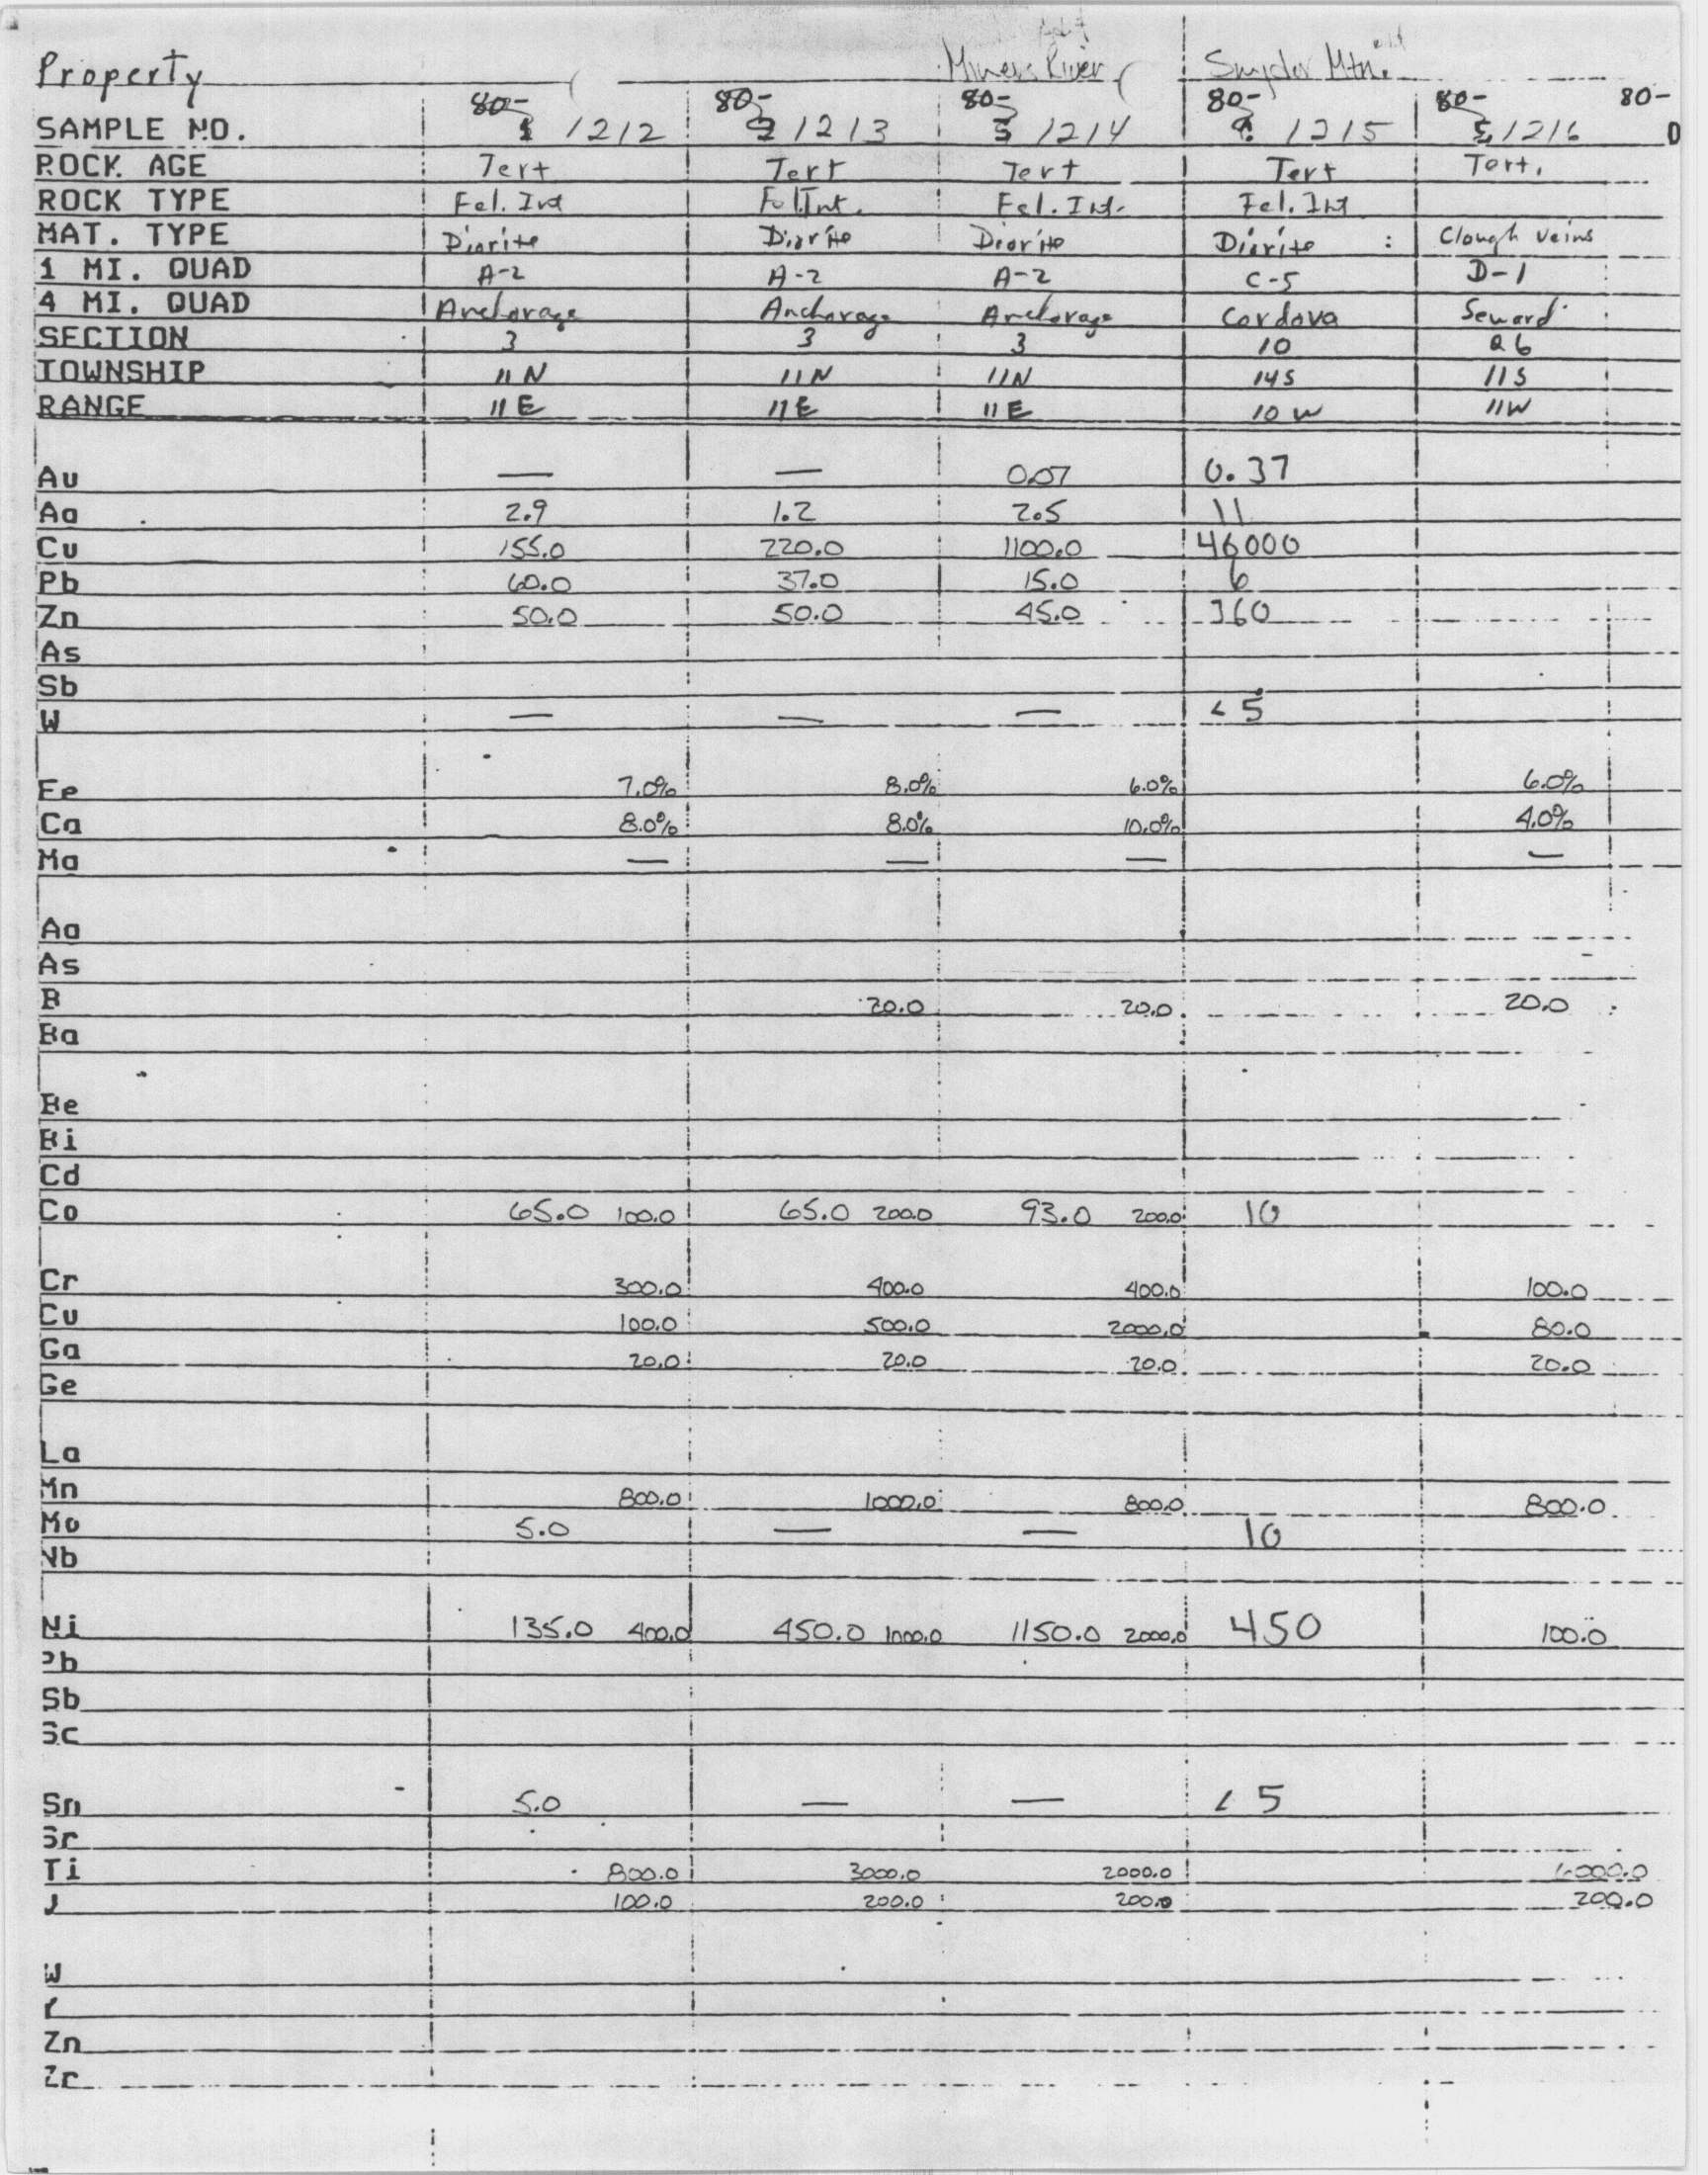 Property Miners River Snyder Mtn.
80- 80- 80- 80- 80- 80-
SAMPLE NO. 1212 1213 1214 1215 1216
ROCK AGE Tert Tert Tert Tert Tert.
ROCK TYPE Fel. Int Fel. Int. Fel. Int. Fel. Int
MAT. TYPE Diorite Diorite Diorite Diorite : Clough Veins
1 MI. QUAD A-2 A-2 A-2 C-5 D-1
4 MI. QUAD Anchorage Anchorage Anchorage Cordova Seward
SECTION 3 3 3 10 26
TOWNSHIP 11N 11N 11N 14S 11S
RANGE 11E 11E 11E 10W 11W
Au — — 0.07 0.37
Ag 2.9 1.2 2.5 11
Cu 155.0 220.0 1100.0 46000
Pb 60.0 37.0 15.0 6
Zn 50.0 50.0 45.0 360
As
Sb
W — — — <5
Fe 7.0% 8.0% 6.0% 6.0%
Ca 8.0% 8.0% 10.0% 4.0%
Mg — — — —
Ag
As
B 20.0 20.0 20.0
Ba
Be
Bi
Cd
Co 65.0 100.0 65.0 200.0 93.0 200.0 10
Cr 300.0 400.0 400.0 100.0
Cu 100.0 500.0 2000.0 80.0
Ga 20.0 20.0 20.0 20.0
Ge
La
Mn 800.0 1000.0 800.0 800.0
Mo 5.0 — — 10
Nb
Ni 135.0 400.0 450.0 1000.0 1150.0 2000.0 450 100.0
Pb
Sb
Sc
Sn 5.0 — — <5
Sr
Ti 800.0 3000.0 2000.0 6000.0
100.0 200.0 200.0 200.0
W
Zn
Zr